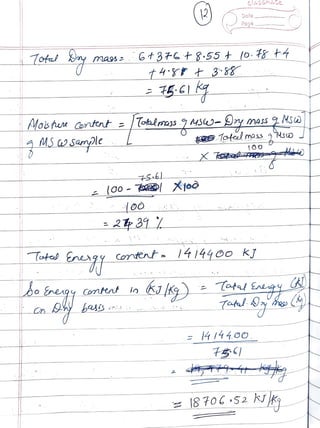 classmate
Date
Page
12
Total Dry mass = 6+37.6+8.55+10.78+4
+4.81 + 3.88
= 75.61 kg
Moisture content = [Total mass of MSW - Dry mass of MSW]
of MSW sample
Total mass of MSW
× 100
75.61
= 100 - ×100
100
= 24.39 %
Total Energy content = 1414400 KJ
So Energy content in (KJ/kg) = Total Energy (KJ)
on Dry basis Total Dry mass (kg)
= 1414400
75.61
=
= 18706.52 KJ/kg